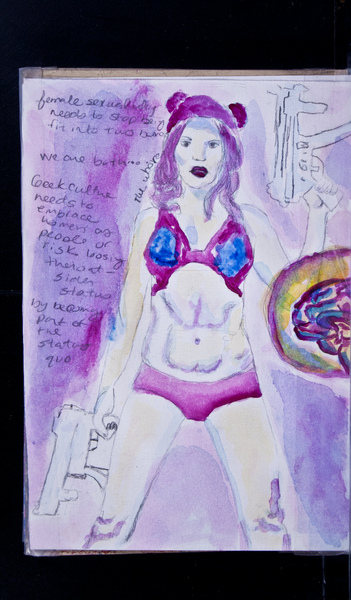 female sexuality
needs to stop being
fit into two
we are both
the whore
Geek culture
needs to
embrace
women as
people or
risk losing
their out-
sider
status
by becoming
part of
the
status
quo